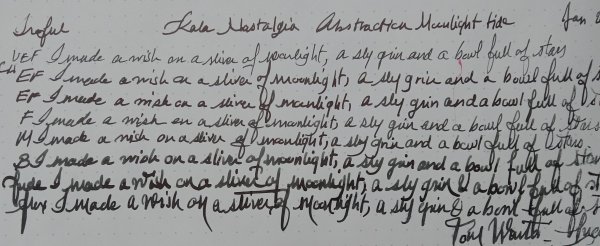 Iroful Kala Nostalgia Abstraction Moonlight tide Jan
UEF I made a wish on a sliver of moonlight, a sly grin and a bowl full of stars
EF I made a wish on a sliver of moonlight, a sly grin and a bowl full of s
EF I made a wish on a sliver of moonlight, a sly grin and a bowl full of st
F I made a wish on a sliver of moonlight, a sly grin and a bowl full of stars
M I made a wish on a sliver of moonlight, a sly grin and a bowl full of stars
B I made a wish on a sliver of moonlight, a sly grin and a bowl full of star
fude I made a wish on a sliver of moonlight, a sly grin & a bowl full of st
I made a wish on a sliver of moonlight, a sly grin & a bowl full of st
Tom Waits